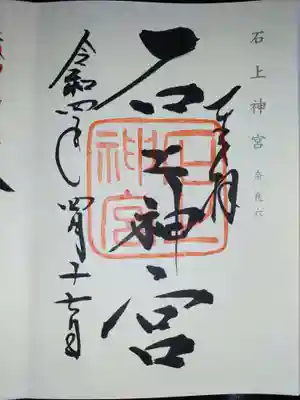 石上神宮 奈良六
奉拝
石上神宮
令和四年四月二十七日
石上神宮